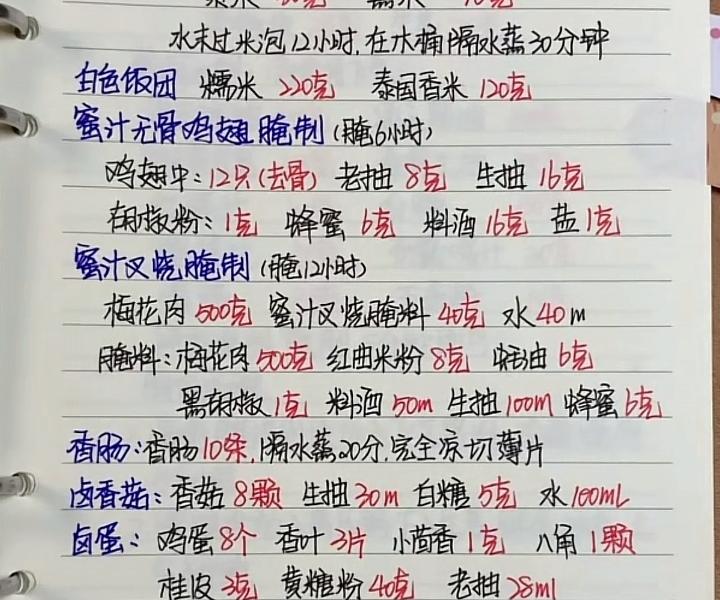 水末过米泡12小时,在木桶隔水蒸30分钟
白色饭团 糯米 220克 泰国香米 120克
蜜汁无骨鸡翅腌制(腌6小时)
鸡翅中:12只(去骨) 老抽 8克 生抽 16克
胡椒粉:1克 蜂蜜 6克 料酒 16克 盐 1克
蜜汁叉烧腌制(腌12小时)
梅花肉 500克 蜜汁叉烧腌料 40克 水 40m
腌料:梅花肉 500克 红曲米粉 8克 蚝油 6克
黑胡椒 1克 料酒 50m 生抽 100m 蜂蜜 6克
香肠:香肠10条,隔水蒸20分,完全凉切薄片
卤香菇:香菇 8颗 生抽 30m 白糖 5克 水 100mL
卤蛋:鸡蛋 8个 香叶 3片 小茴香 1克 八角 1颗
桂皮 3克 黄糖粉 40克 老抽 28ml